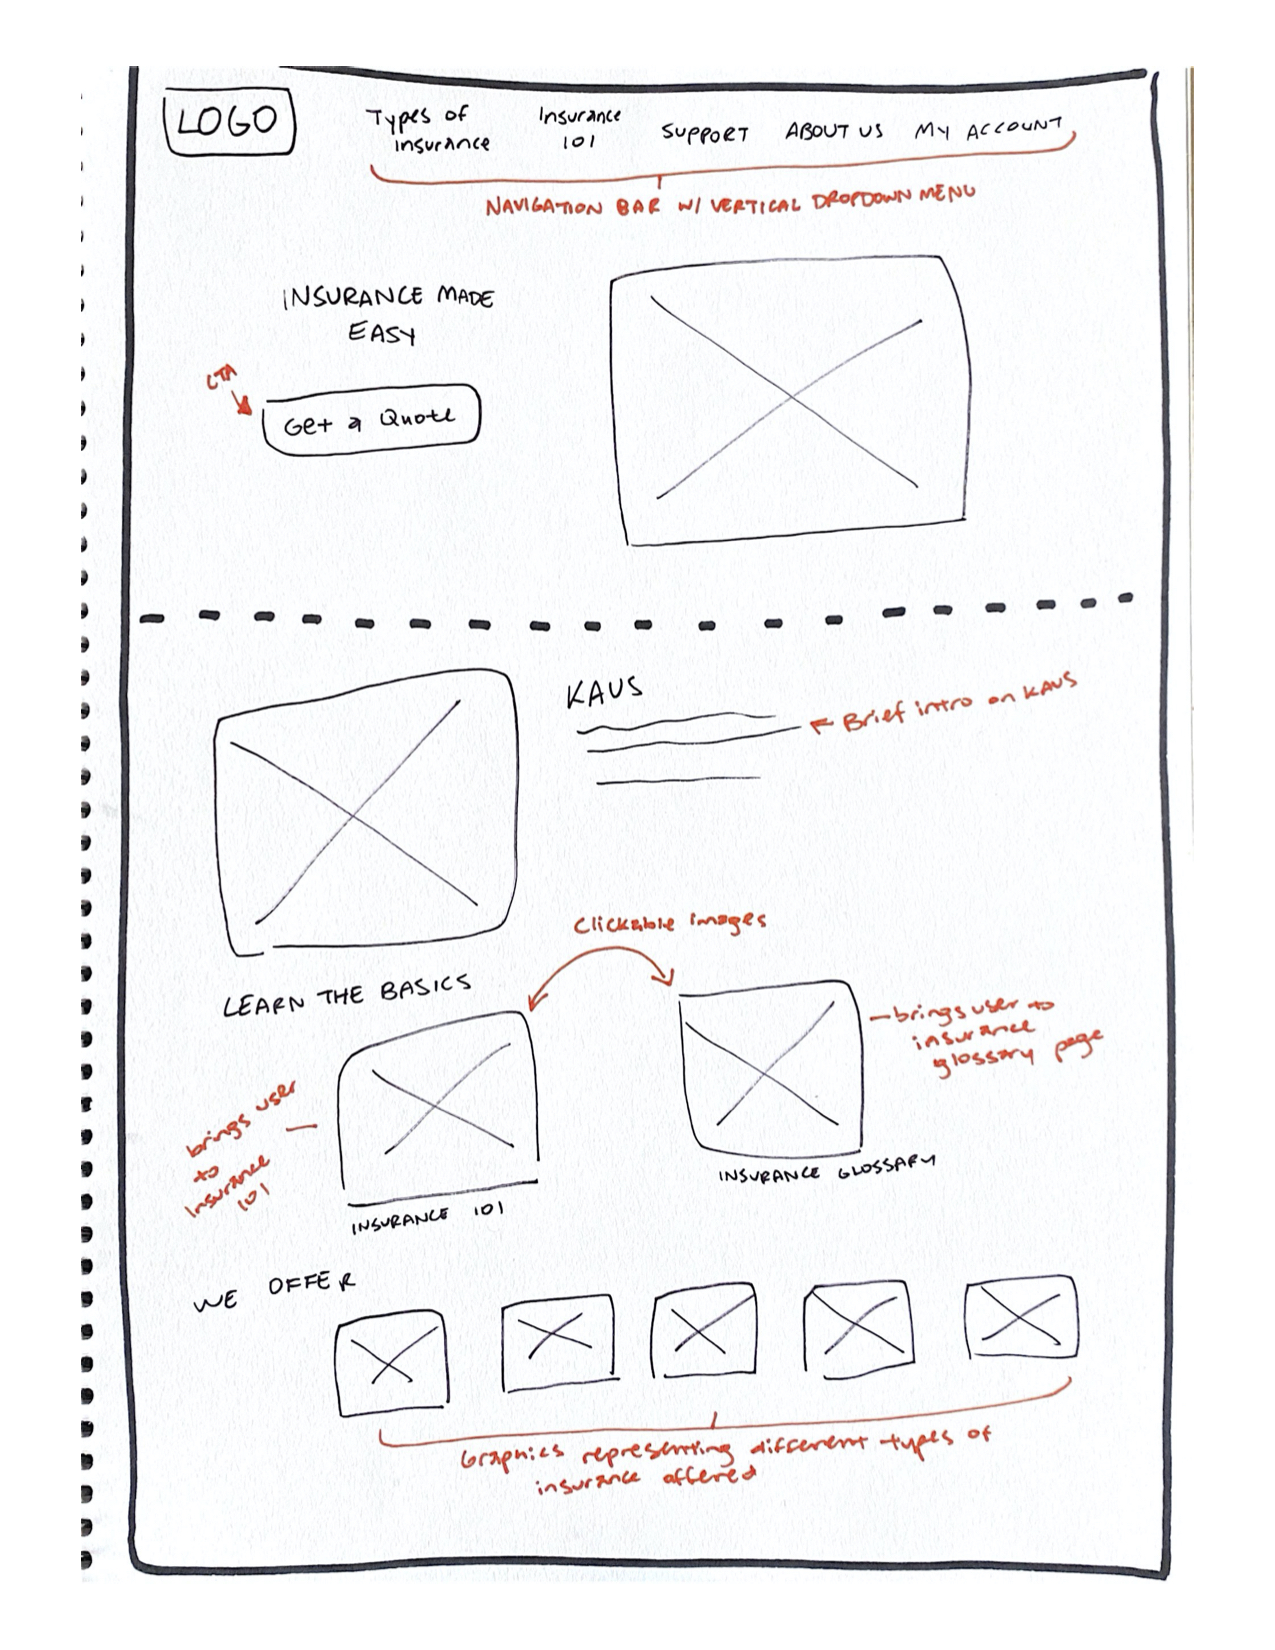 LOGO
Types of
insurance
Insurance
101
SUPPORT
ABOUT US
MY ACCOUNT
NAVIGATION BAR W/ VERTICAL DROPDOWN MENU
INSURANCE MADE
EASY
CTA
Get a Quote
KAUS
Brief intro on KAUS
Clickable images
LEARN THE BASICS
brings user to
insurance
glossary page
brings user
to
Insurance
101
INSURANCE GLOSSARY
INSURANCE 101
WE OFFER
Graphics representing different types of
insurance offered